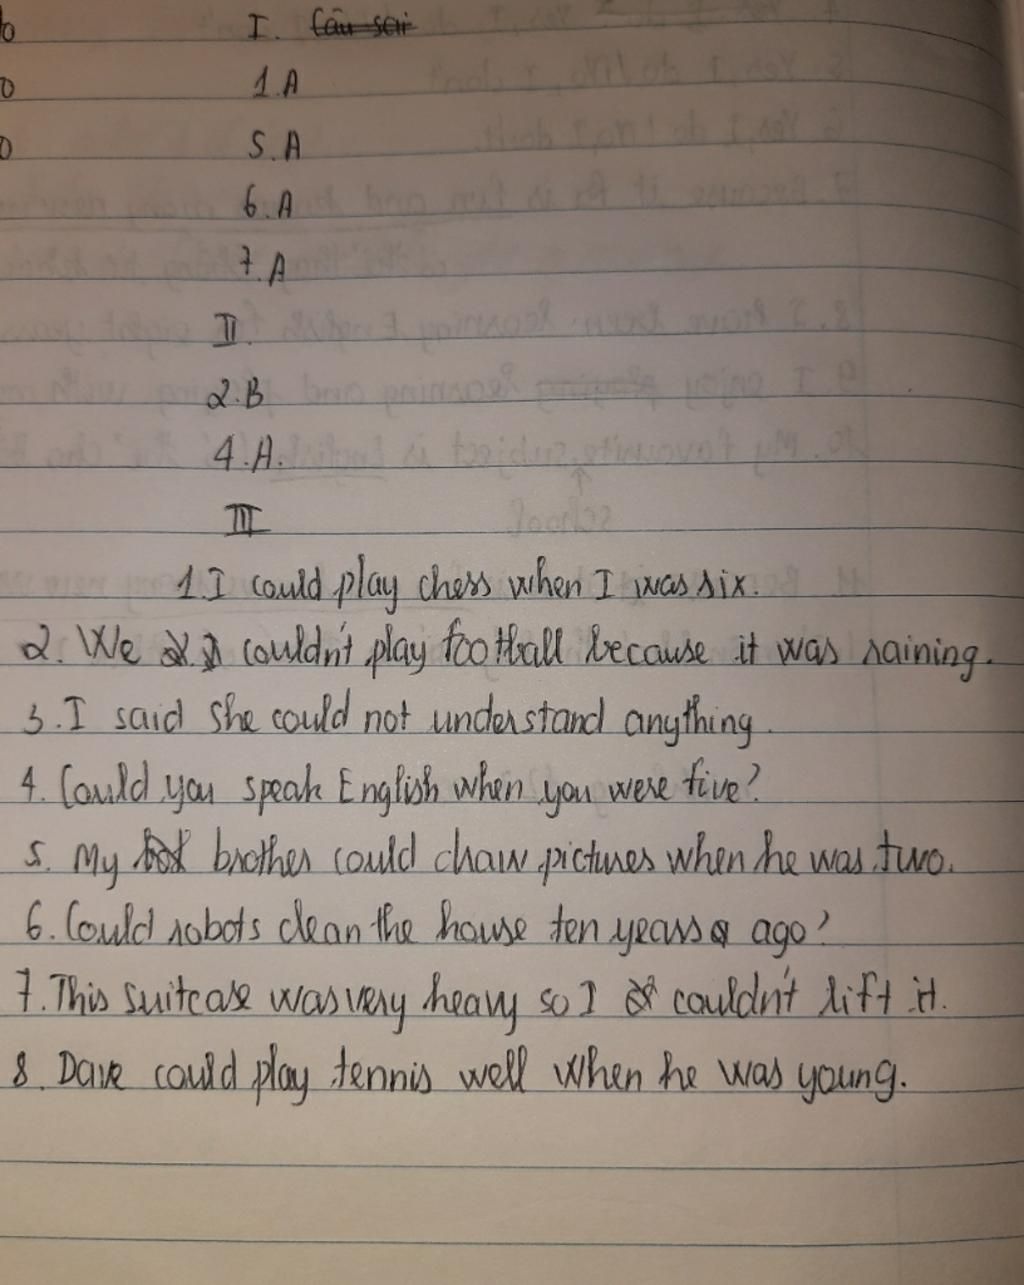 I. Câu sai
1.A
5.A
6.A
7.A
II.
2.B
4.A.
III
1.I could play chess when I was six.
2. We couldn't play football because it was raining.
3.I said she could not understand anything.
4. Could you speak English when you were five?
5. My brother could draw pictures when he was two.
6. Could robots clean the house ten years ago?
7. This suitcase was very heavy so I couldn't lift it.
8. Dave could play tennis well when he was young.